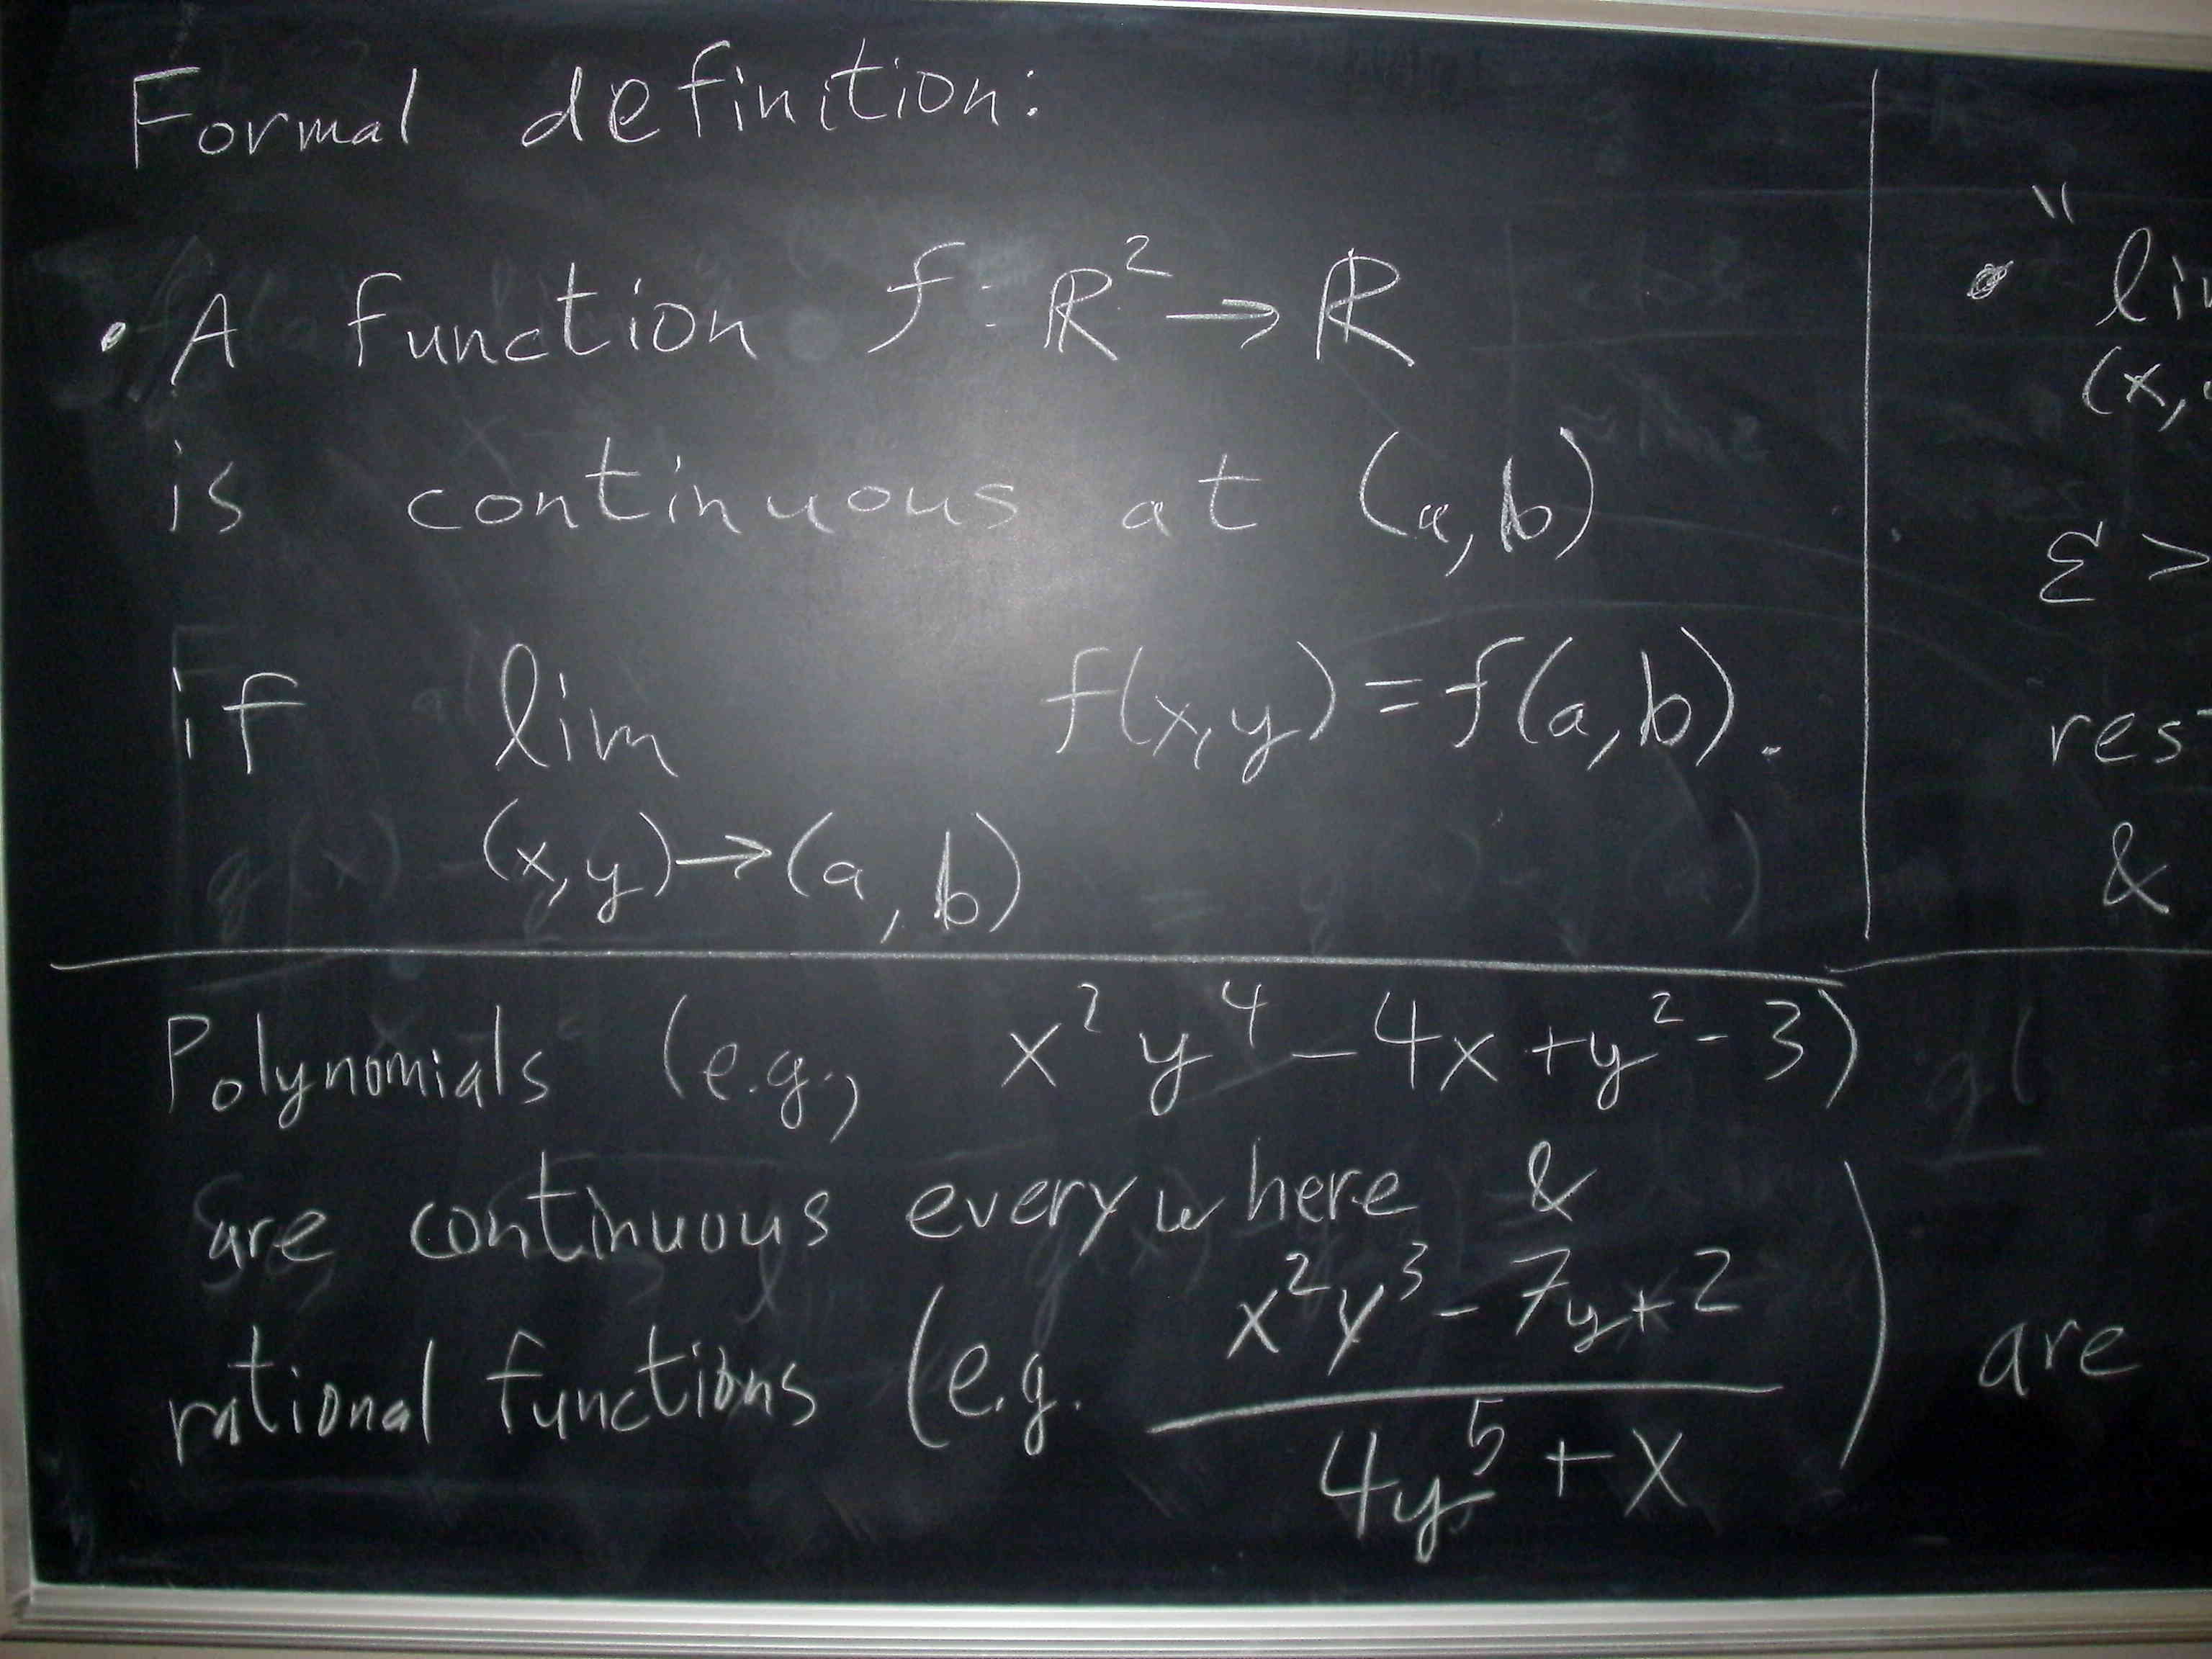 Formal definition:
• A function f: ℝ² → ℝ
is continuous at (a, b)
if lim f(x,y) = f(a, b).
(x,y) → (a, b)
Polynomials (e.g., x²y⁴ - 4x + y² - 3)
are continuous everywhere &
rational functions (e.g. (x²y³ - 7y + 2)/(4y⁵ + x)) are
"
• li
(x,
ε >
res
&